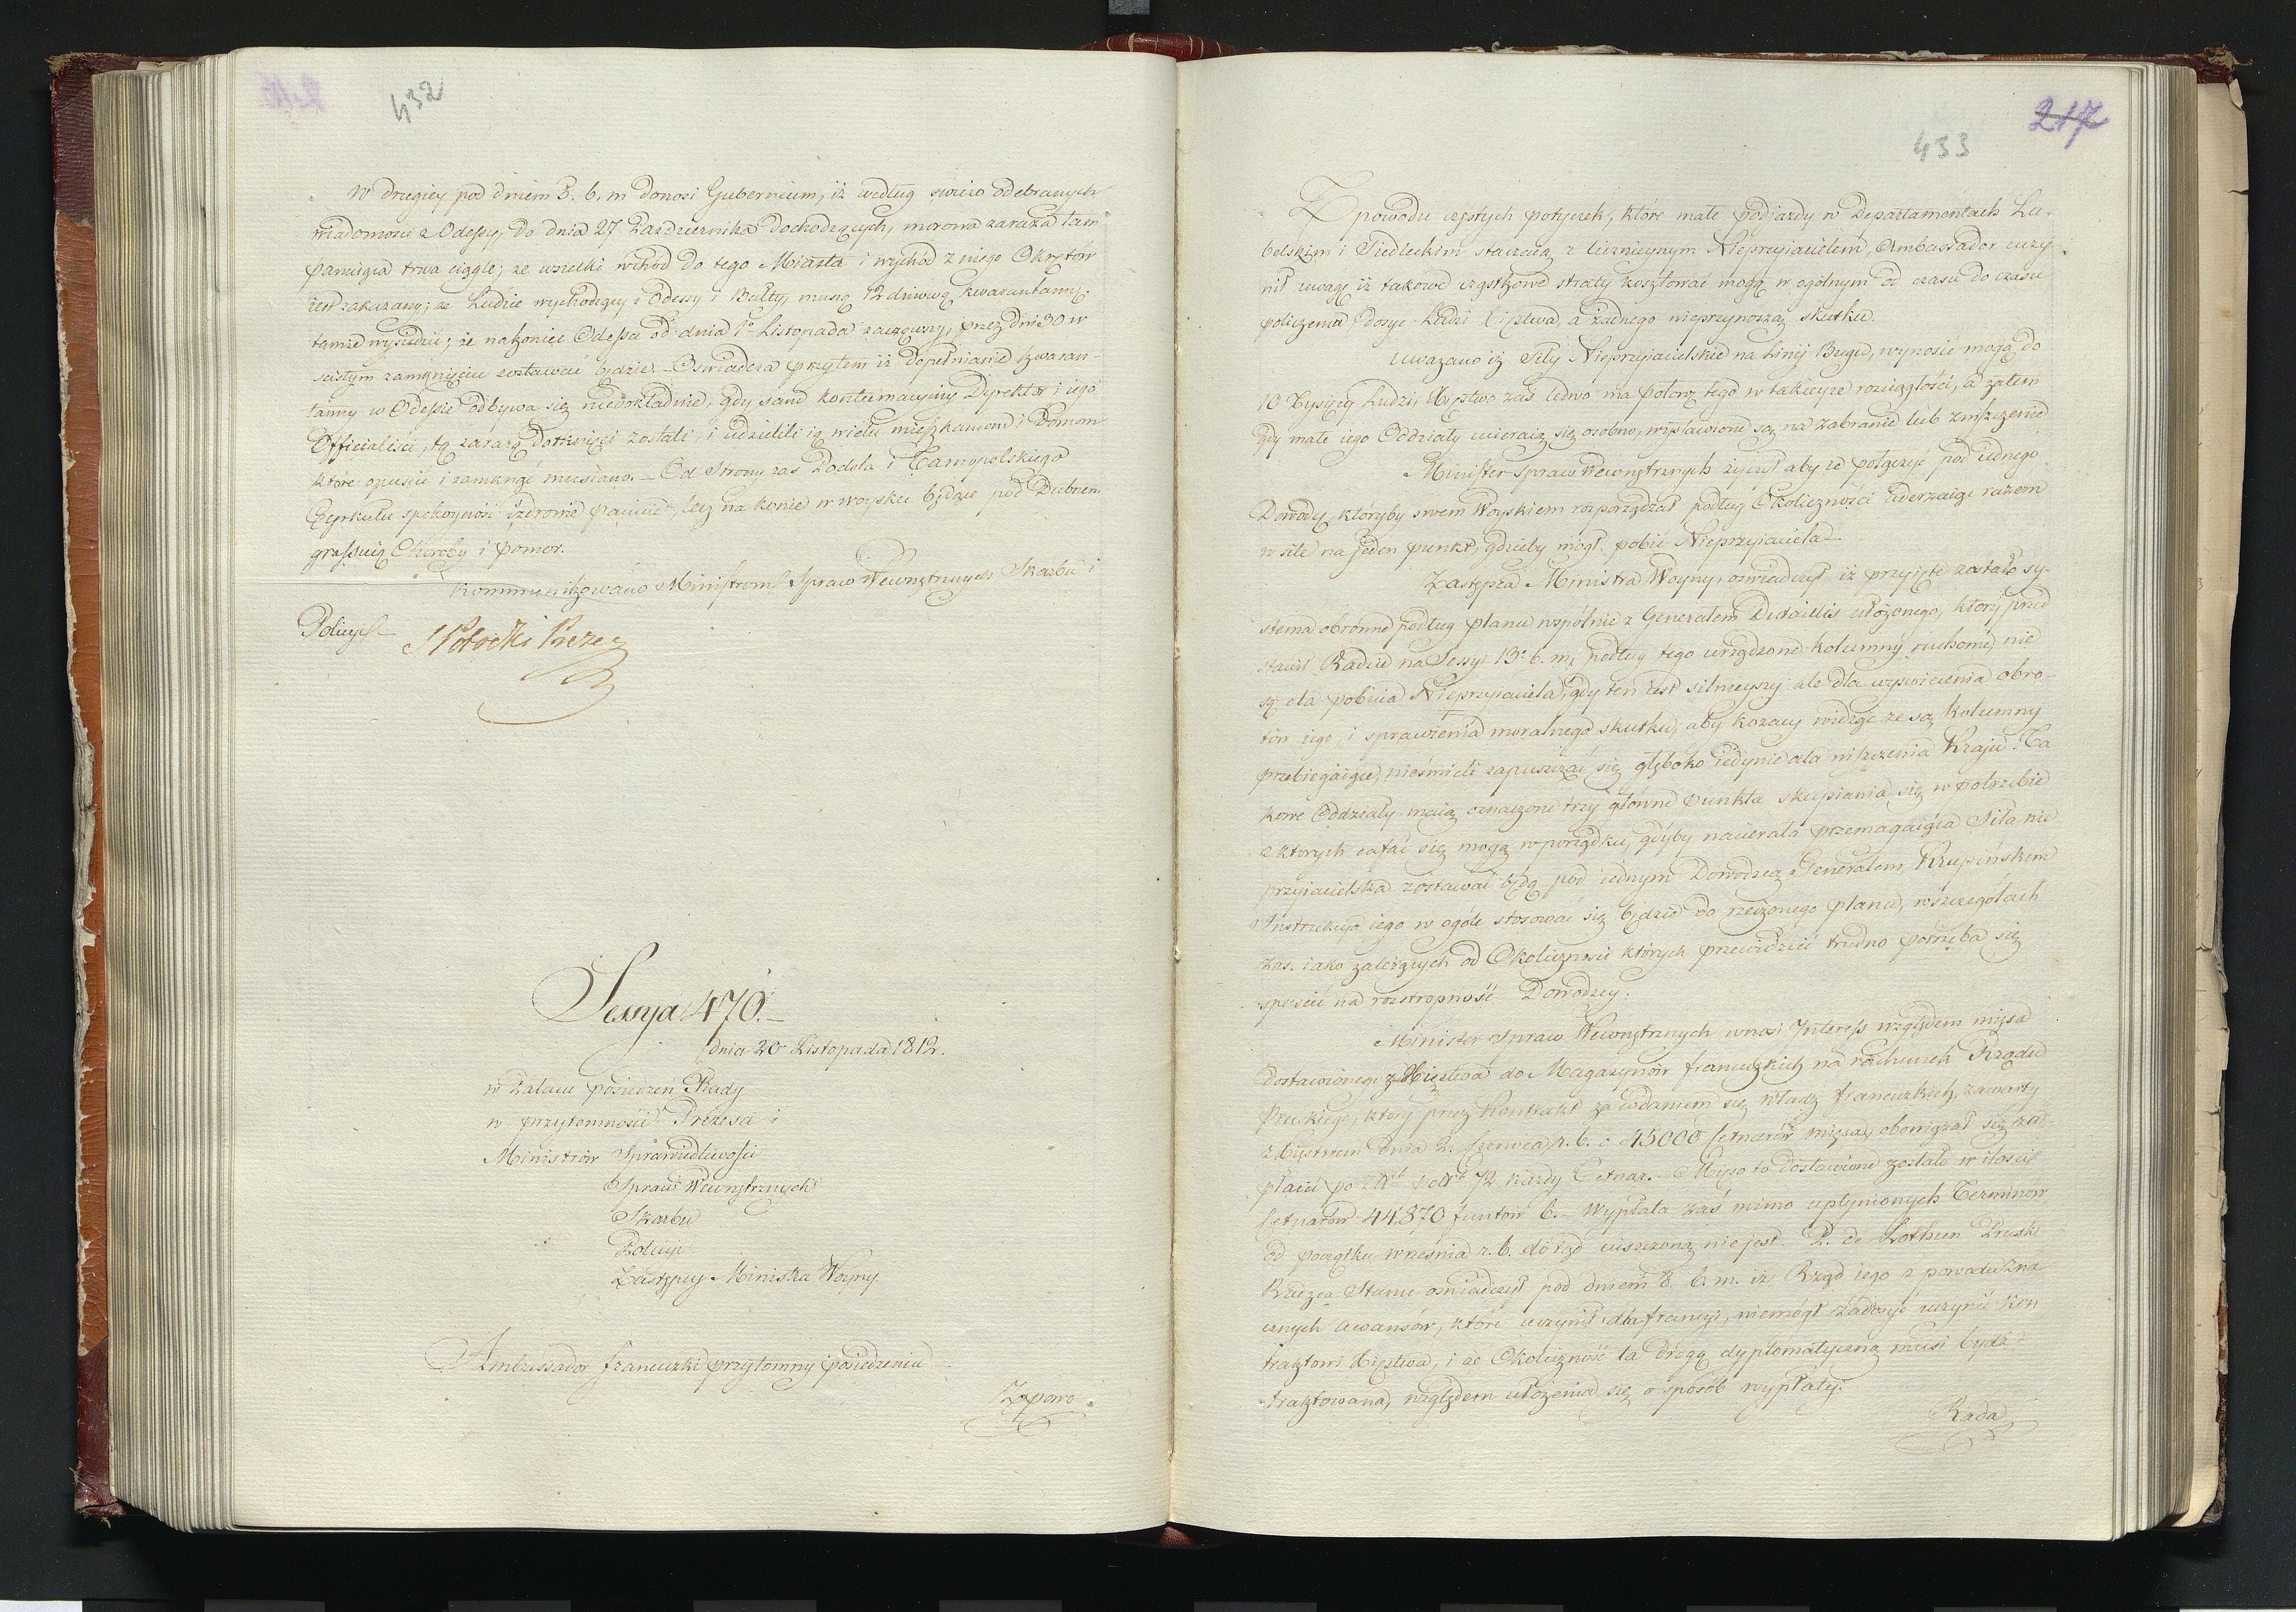 432
W drugiey pod dniem 3. b. m donosi Gubernium, iż według swieżo odebranych
wiadomosci z Odessy, do dnia 27 Pazdziernika dochodzących, morowa zaraza tam
panuiąca trwa ciągle; że wszelki wchod do tego Miasta i wychod z niego Okrętów
iest zakazany; że Ludzie wychodzący z Odessy i Bałty, muszą 12 dniową kwarantannę
tamże wysiedzieć; że nakoniec Odessa od dnia 1o Listopada zacząwszy, przez dni 30 w
scisłym zamknięciu zostawać będzie. – Oswiadcza przytem iż dopełnianie kwaran-
tanny w Odessie odbywa się niedokładnie, gdy sam kontumacyiny Dyrektor i iego
Officialiści, tą zarazą dotknięci zostali, i udzielili ią wielu mieszkancom i Domom
które opuscić i zamknąć musiano. – Od strony zas Podola i Tarnopolskiego
Cyrkułu spokoyność i zdrowie panuie, lecz na konie w woysku będące pod Dubnem
grassuią Choroby i pomor.
Kommunikowano Ministrom Spraw Wewnętrznych Skarbu i
Policyi –
S Potocki Prezes
Sessya 470. –
dnia 20 Listopada 1812.
w Pałacu posiedzeń Rady
w przytomności Prezesa i
Ministrów Sprawiedliwości
Spraw Wewnętrznych
Skarbu
Policyi
Zastępcy Ministra Woyny.
Ambassador francuzki przytomny posiedzeniu
Z powo
217
433
Z powodu częstych potyczek, które małe podjazdy w Departamentach Lu-
belskim i Siedleckim staczaią z licznieyszym Nieprzyiacielem, Ambassador uczy
nił uwagę iż takowe cząstkowe straty kosztować mogą w ogólnym od czasu do czasu
policzeniu, dosyć Ludzi Xięstwa, a żadnego nieprzynoszą skutku.
Uważano iż Siły Nieprzyiacielskie na Linij Bugu, wynosić mogą do
10 Tysięcy Ludzi, Xięstwo zaś ledwo ma połowę tego w takieyże rozciągłości, a zatem
gdy małe iego Oddziały ucieraią się osobno, wystawione są na zabranie lub zniszczenie
Minister Spraw Wewnętrznych życzył aby ie połączyć pod iednego
Dowodcę któryby swem Woyskiem rozporządzał podług Okoliczności uderzaiąc razem
w sile na jeden punkt, gdzieby mógł pobić Nieprzyiaciela –
Zastępca Ministra Woyny, oswiadczył iż przyięte zostało sy-
stema obronne podług planu wspólnie z Generałem Dutaillis ułożonego, który przed
stawił Radzie na Sessyi 13a b. m, podług tego urządzone kolumny ruchome, nie
są dla pobicia Nieprzyiaciela, gdy ten iest silnieyszy ale dla wysledzenia obro-
tów iego, i sprawienia moralnego skutku, aby kozacy widząc że są kolumny
przebiegaiące, niesmieli zapuszczać się głęboko iedynie dla niszczenia Kraju. Ta
kowe Oddziały maią oznaczone trzy główne punkta skupiania się w potrzebie
z ktorych cofać się mogą w porządku, gdyby nacierała przemagaiąca Siła nie
przyiacielska zostawać będą pod iednym Dowodzcą Generałem Krupińskim
Instrukcya iego w ogóle stosować się będzie do rzeczonego planu, w szczegółach
zas. iako zależących od Okoliczności których przewidzieć trudno potrzeba się
spuscić na roztropność Dowodzcy.
Minister Spraw Wewnętrznych wnosi Interess względem mięsa
dostawionego z Xięstwa do Magazynów francuzkich na rachunek Rządu
Pruskiego, ktory przez Kontrakt za wdaniem się władz francuzkich, zawarty
z Xięstwem dnia 2. Czerwca r. b. o 45000 Cetnarów mięsa, obowiązał się za-
płacić po 72 każdy Cetnar. – Mięso to dostawione zostało w ilości
Cetnarów 44.870 funtów 6. – Wypłata zaś mimo upłynionych Terminow
od początku września r. b. dotąd uiszczoną nie jest. P. de Lothum Pruski
Radzca Stanu oswiadczył pod dniem 8 b. m. iż Rząd iego z powodu zna
cznych awansów, które uczynił dla francyi, niemógł zadosyć uczynić kon
traktowi Xięstwa, i że Okoliczność ta drogą dyplomatyczną musi bydź
traktowana, względem ułożenia się o sposób wypłaty.
Rada